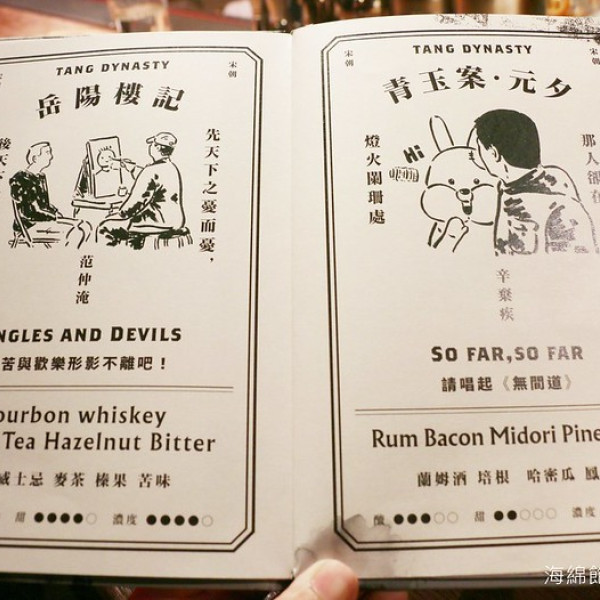 TANG DYNASTY
宋朝
岳陽樓記
先天下之憂而憂，
後天下
范仲淹
NGLES AND DEVILS
苦與歡樂形影不離吧！
ourbon whiskey
Tea Hazelnut Bitter
威士忌 麥茶 榛果 苦味
甜 ●●●●○ 濃度 ●●●●○
宋朝
TANG DYNASTY
青玉案·元夕
那人卻在
燈火闌珊處
Hi
辛棄疾
SO FAR,SO FAR
請唱起《無間道》
Rum Bacon Midori Pine
蘭姆酒 培根 哈密瓜 鳳
酸 ●●●○○ 甜 ●●○○○ 濃度
海綿飽